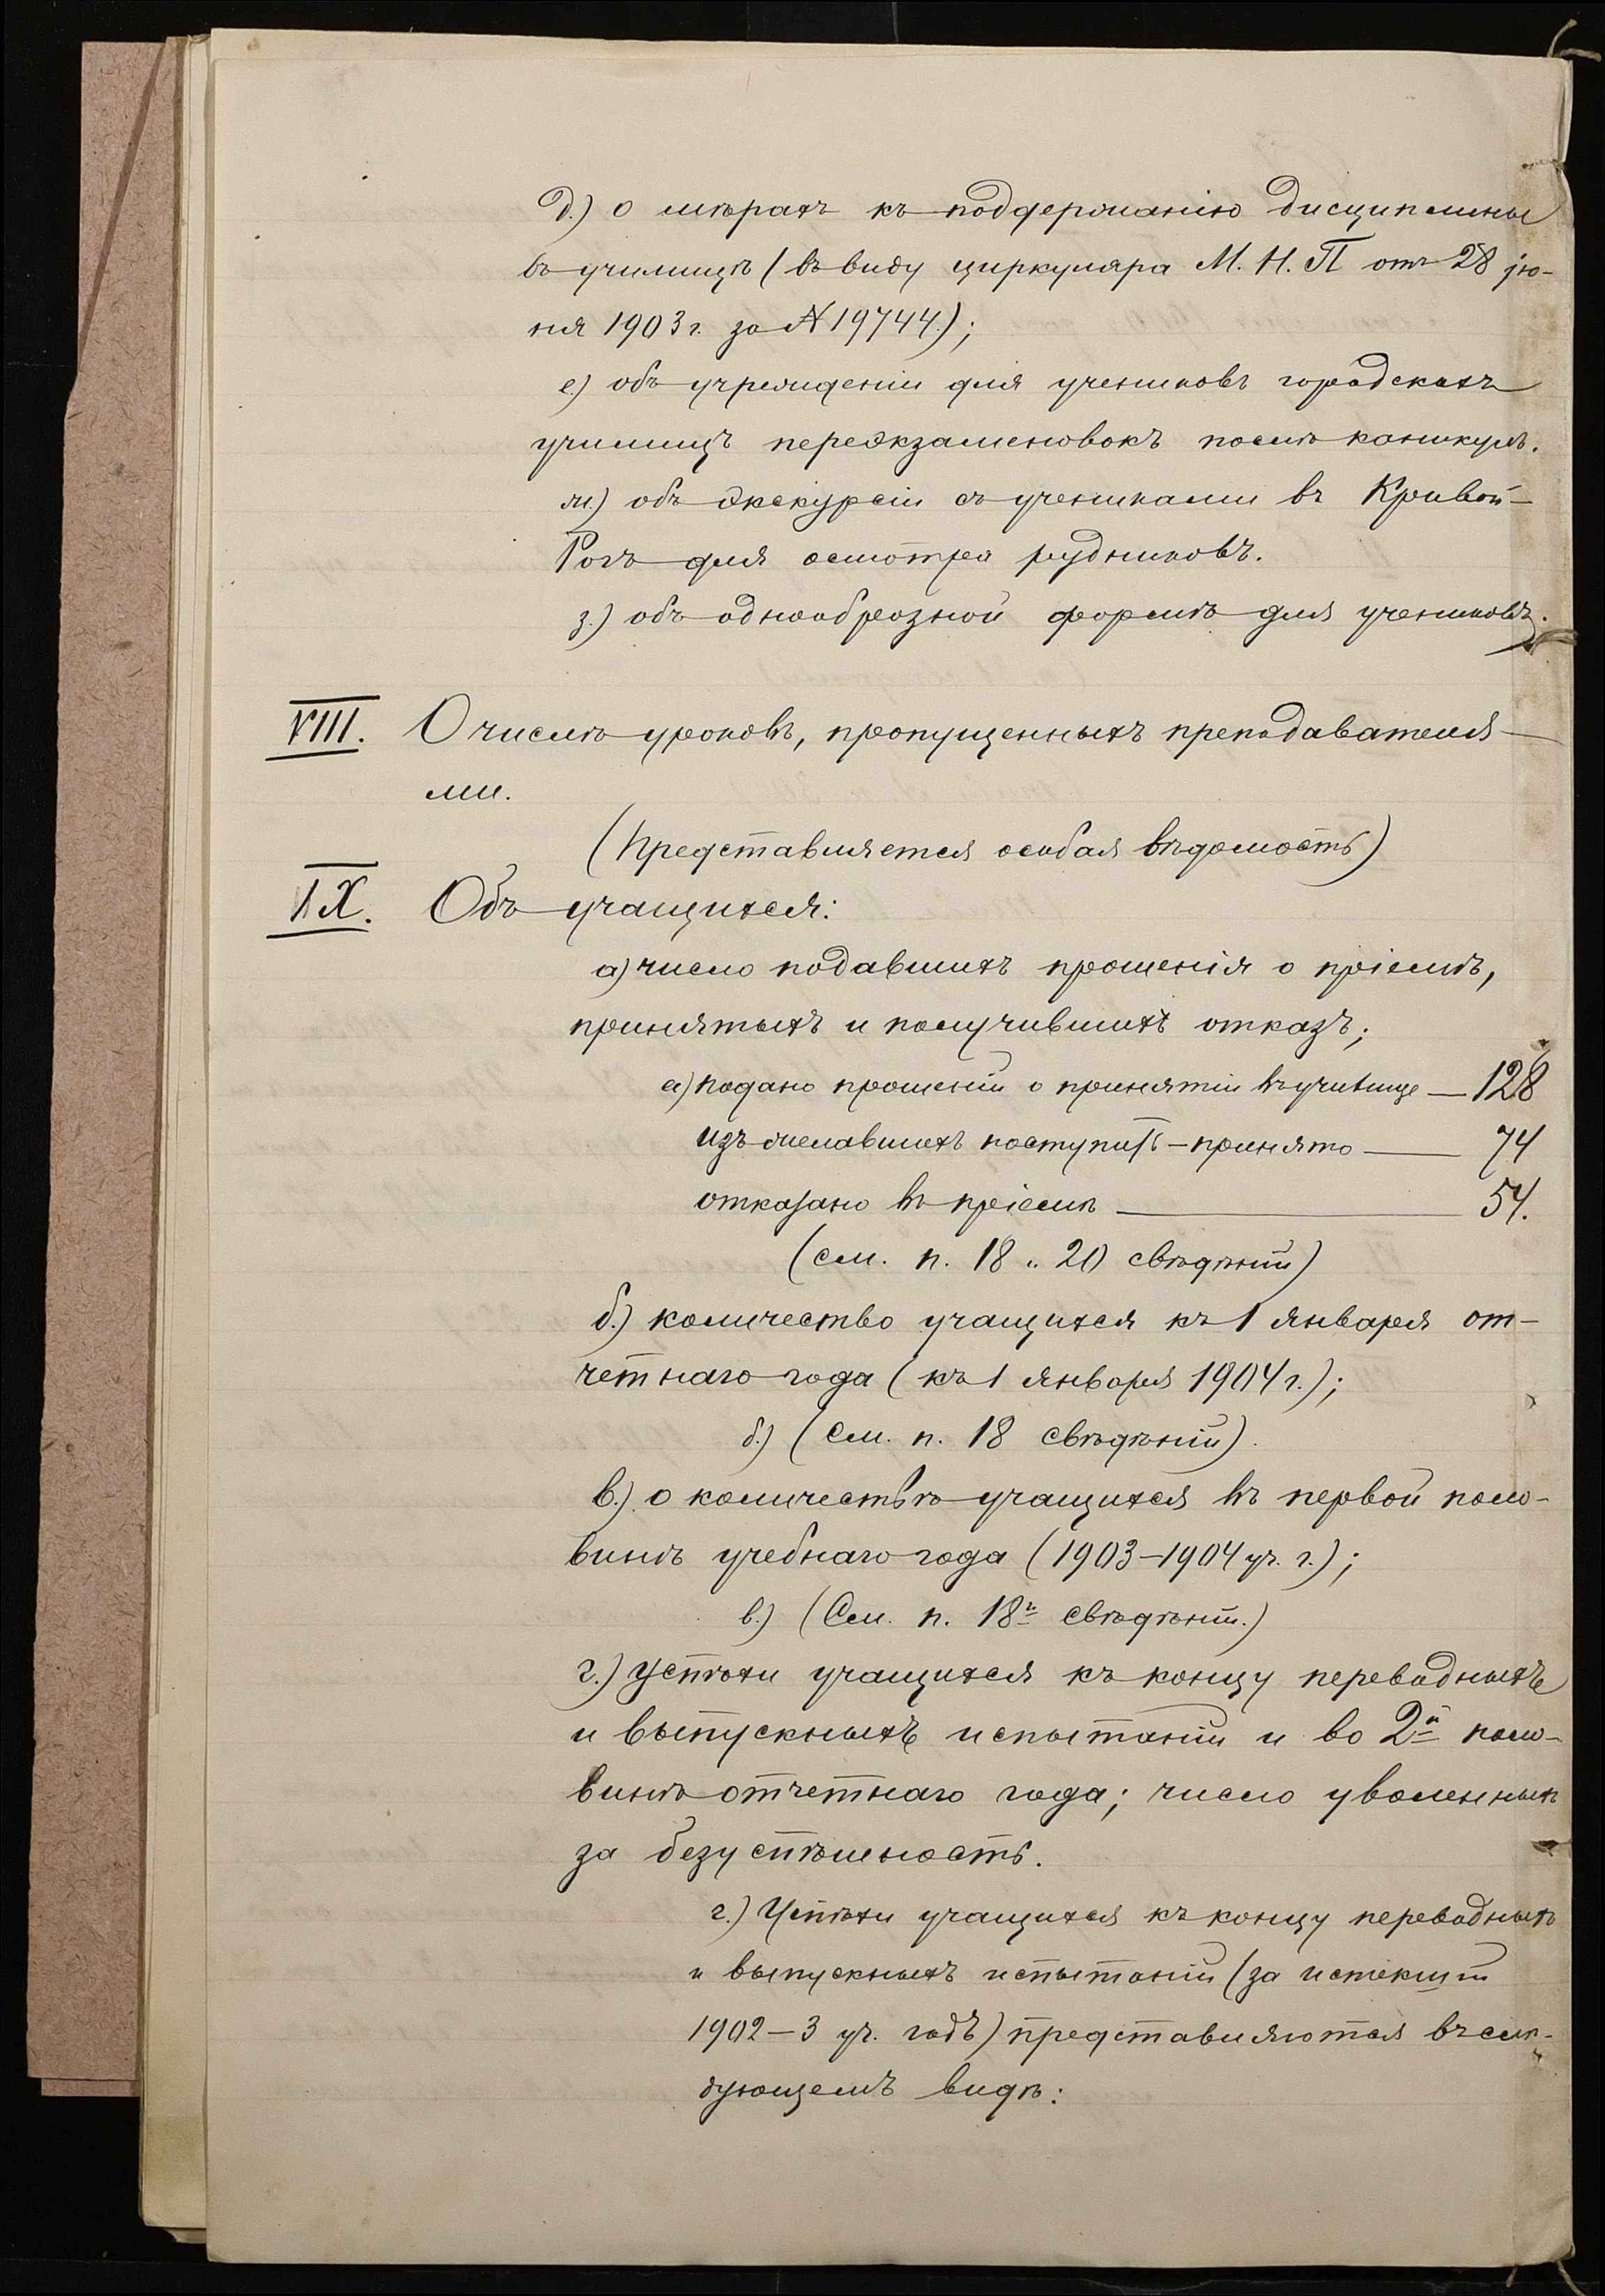 д.) о мѣрахъ къ поддержанію дисциплины
въ училищѣ (въ виду циркуляра М. Н. П отъ 28 ію-
ня 1903 г. за № 19744.);
е.) объ учрежденіи для учениковъ городскихъ
училищъ переэкзаменовокъ послѣ каникулъ.
ж.) объ экскурсіи съ учениками въ Кривой-
Рогъ для осмотра рудниковъ.
з.) объ однообразной формѣ для учениковъ.
VIII. О числѣ уроковъ, пропущенныхъ преподавателя-
ми.
(Представляется особая вѣдомость)
IX. Объ учащихся:
а) число подавшихъ прошенія о пріемѣ,
принятыхъ и получившихъ отказъ;
а) подано прошеній о принятіи въ училище — 128
изъ желавшихъ поступить – принято — 74
отказано въ пріемѣ — 54.
(см. п. 18 и 20 свѣдѣній)
б.) количество учащихся къ 1 января от-
четнаго года (къ 1 января 1904 г.);
б.) (См. п. 18 свѣдѣній).
в.) о количествѣ учащихся въ первой поло-
винѣ учебнаго года (1903–1904 уч. г.);
в.) (См. п. 18й свѣдѣній.)
г.) Успѣхи учащихся къ концу переводныхъ
и выпускныхъ испытаній и во 2й поло-
винѣ отчетнаго года; число уволенныхъ
за безуспѣшность.
г.) Успѣхи учащихся къ концу переводныхъ
и выпускныхъ испытаній (за истекшій
1902–3 уч. годъ) представляются въ слѣ-
дующемъ видѣ: